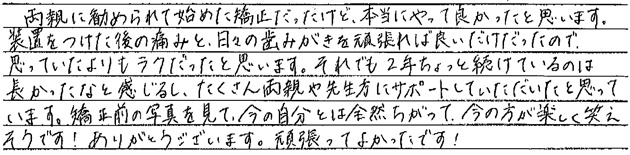 両親に勧められて始めた矯正だったけど、本当にやって良かったと思います。
装置をつけた後の痛みと、日々の歯みがきを頑張れば良いだけだったので、
思っていたよりもラクだったと思います。それでも2年ちょっと続けているのは
長かったなと感じるし、たくさん両親や先生方にサポートしていただいたと思って
います。矯正前の写真を見て、今の自分とは全然ちがって、今の方が楽しく笑え
そうです！ありがとうございます。頑張ってよかったです！